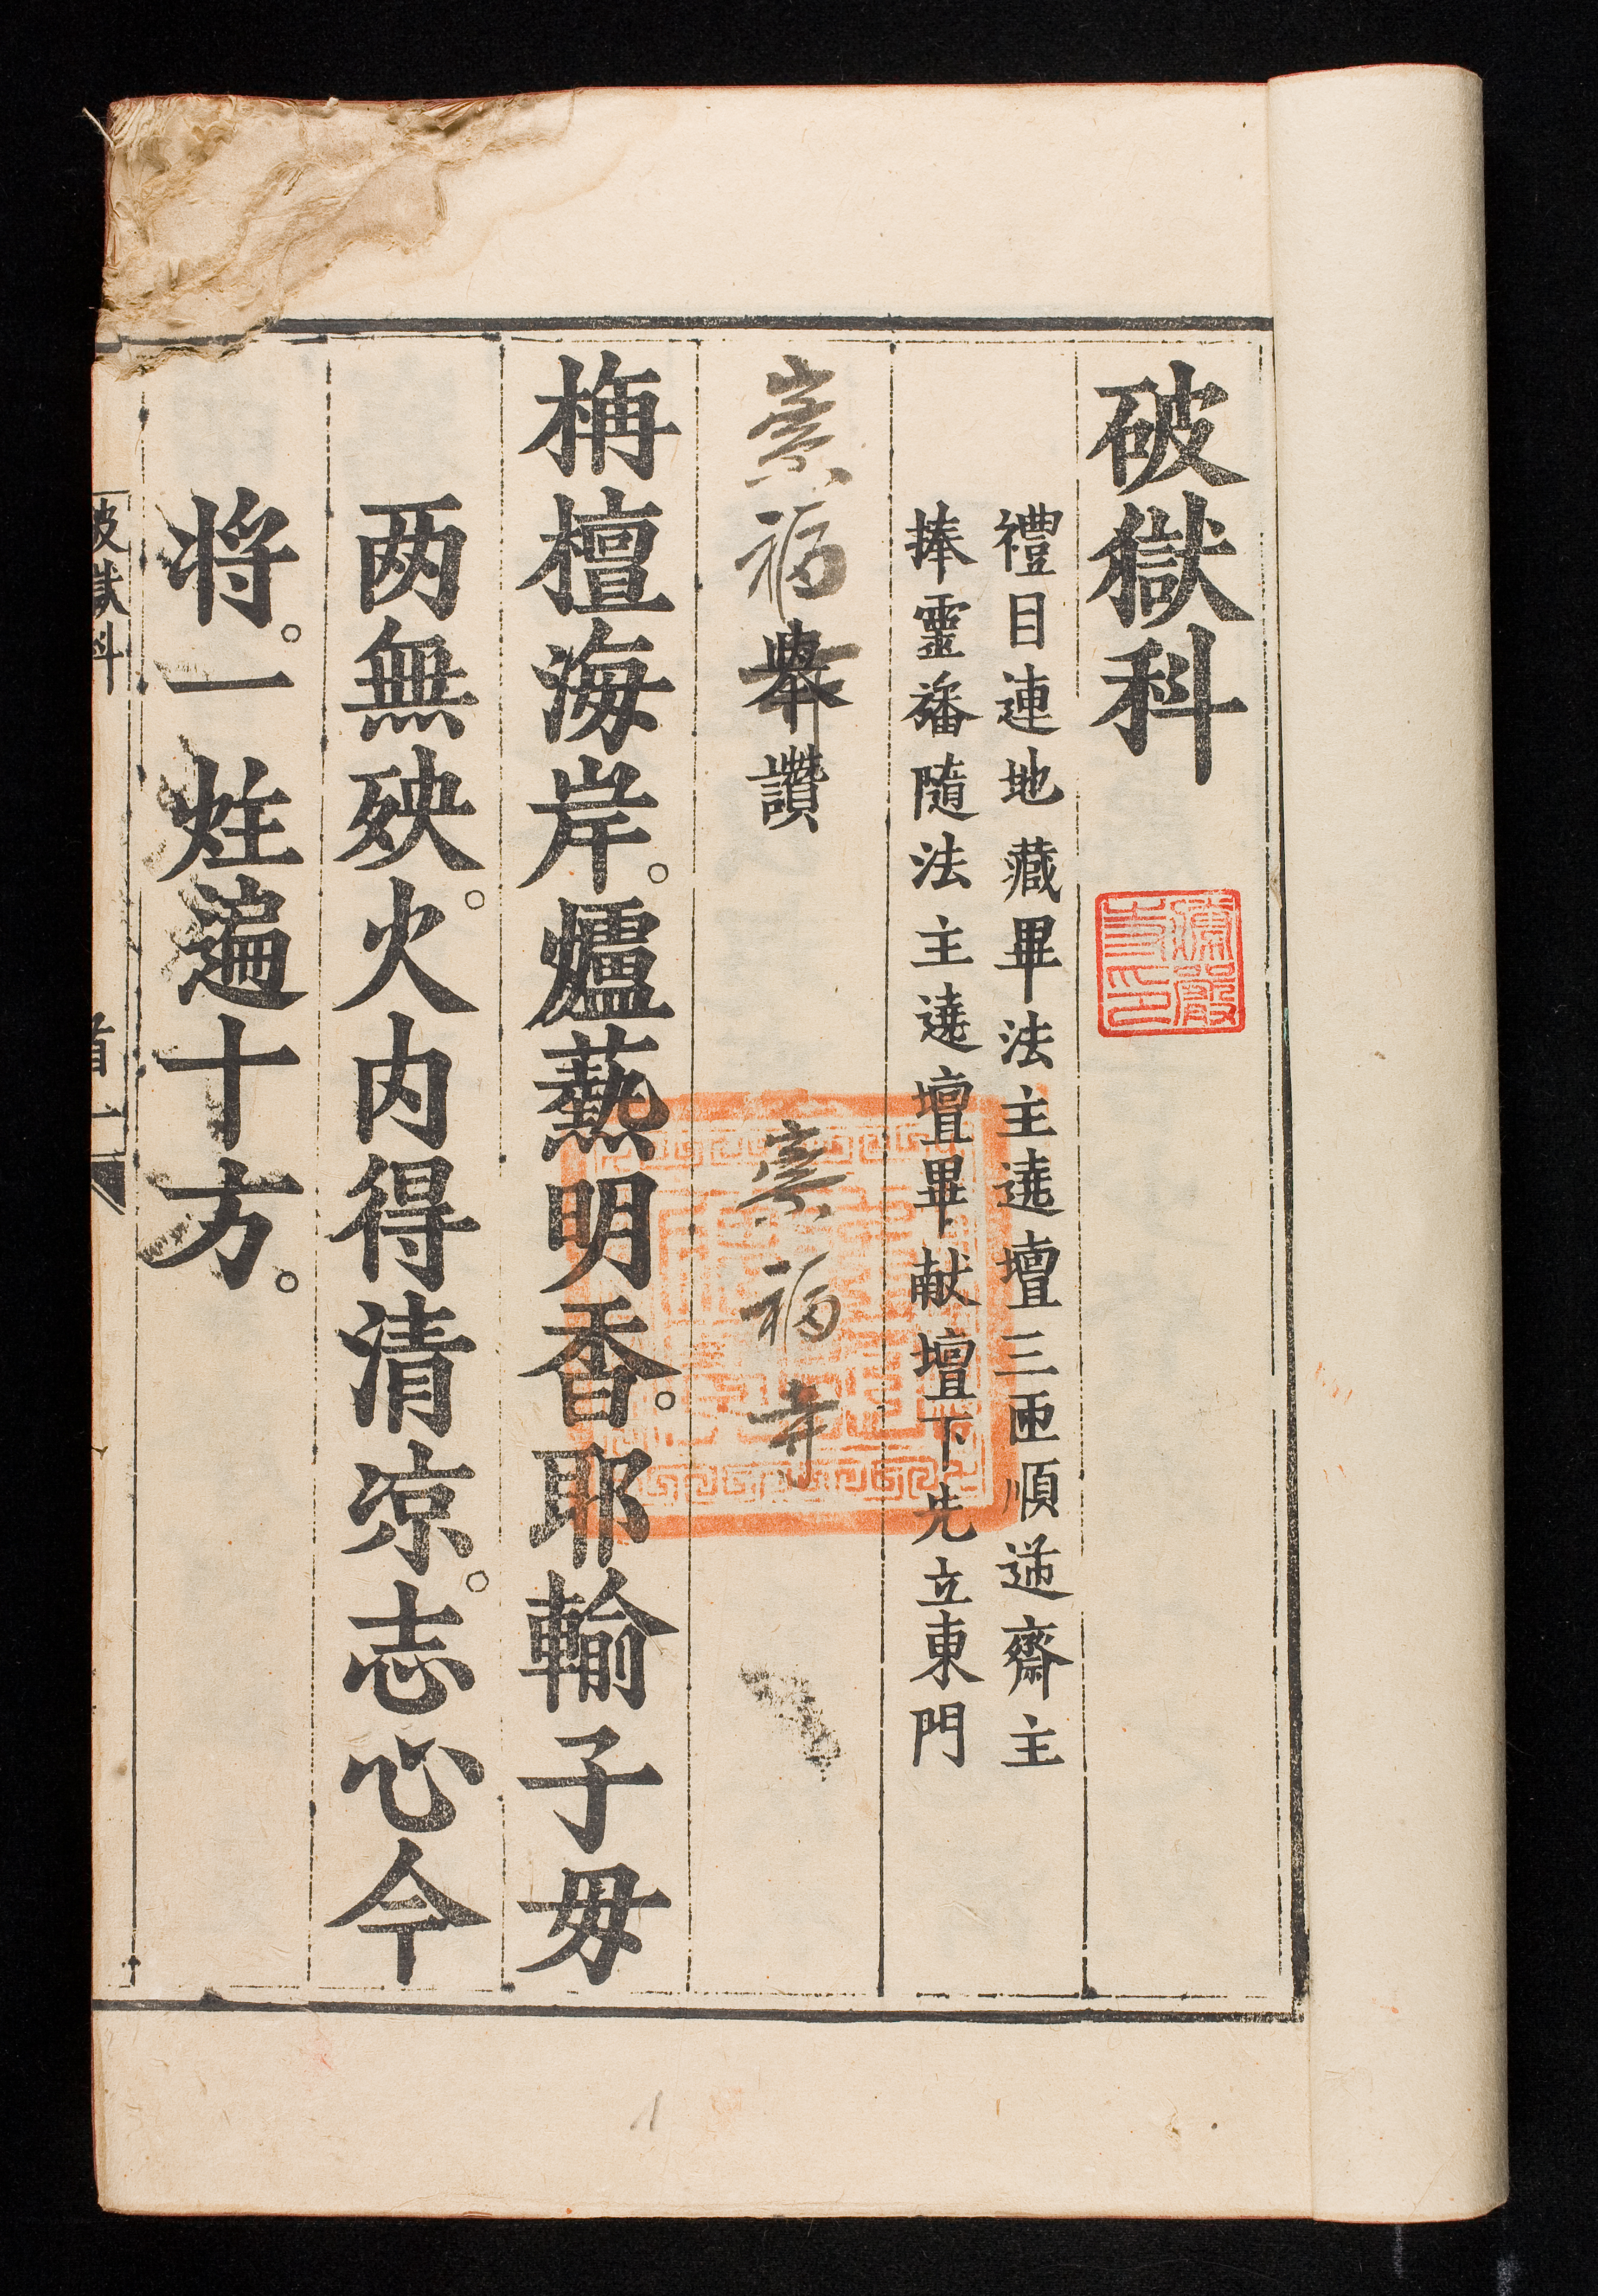 破獄科
禮目連地藏畢法主遶壇三匝順逆齋主
捧靈旛隨法主遶壇畢献壇下先立東門
崇福
舉讚
崇福寺
栴檀海岸。爐爇明香。耶輸子母
两無殃。火内得清凉。志心今
将。一炷遍十方。
破獄科
首一